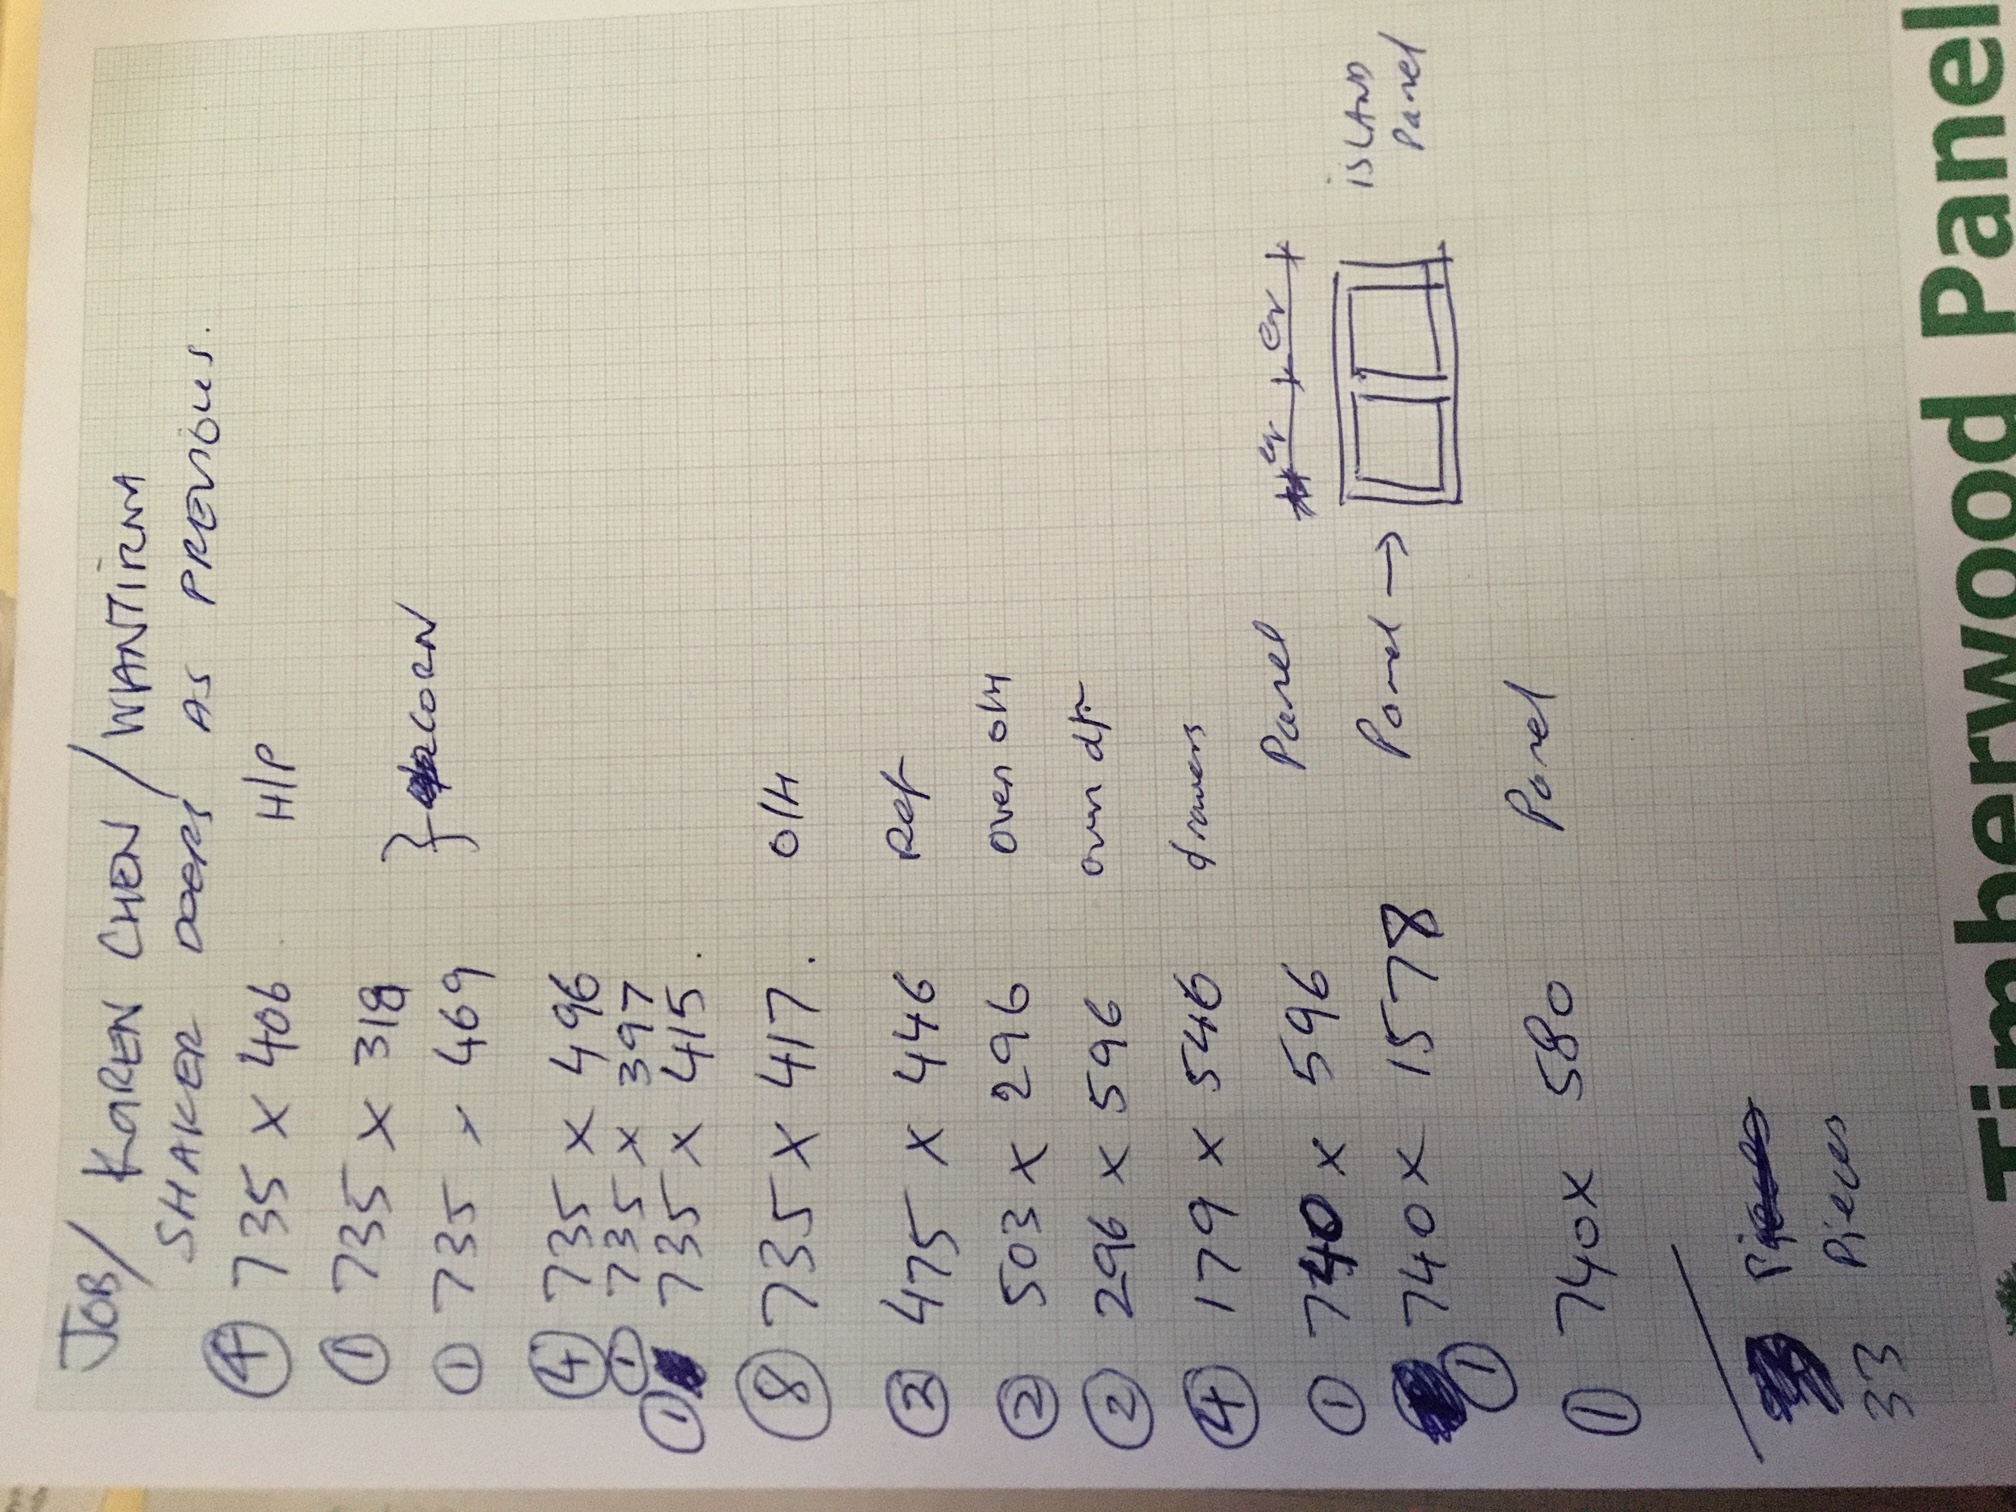 JOB/ KAREN CHEN / WANTIRNA
SHAKER DOORS AS PREVIOUS.
④ 735 x 406 H/P
① 735 x 318
① 735 x 469 } CORN
④ 735 x 496
① 735 x 397
① 735 x 415.
⑧ 735 x 417. O/H
② 475 x 446 Ref
② 503 x 296 oven O/H
② 296 x 596 oven dfr
④ 179 x 546 drawers
① 740 x 596 Panel
① 740 x 1578 Panel → ISLAND Panel
ev ev
① 740 x 580 Panel
33 Pieces
Timberwood Panel